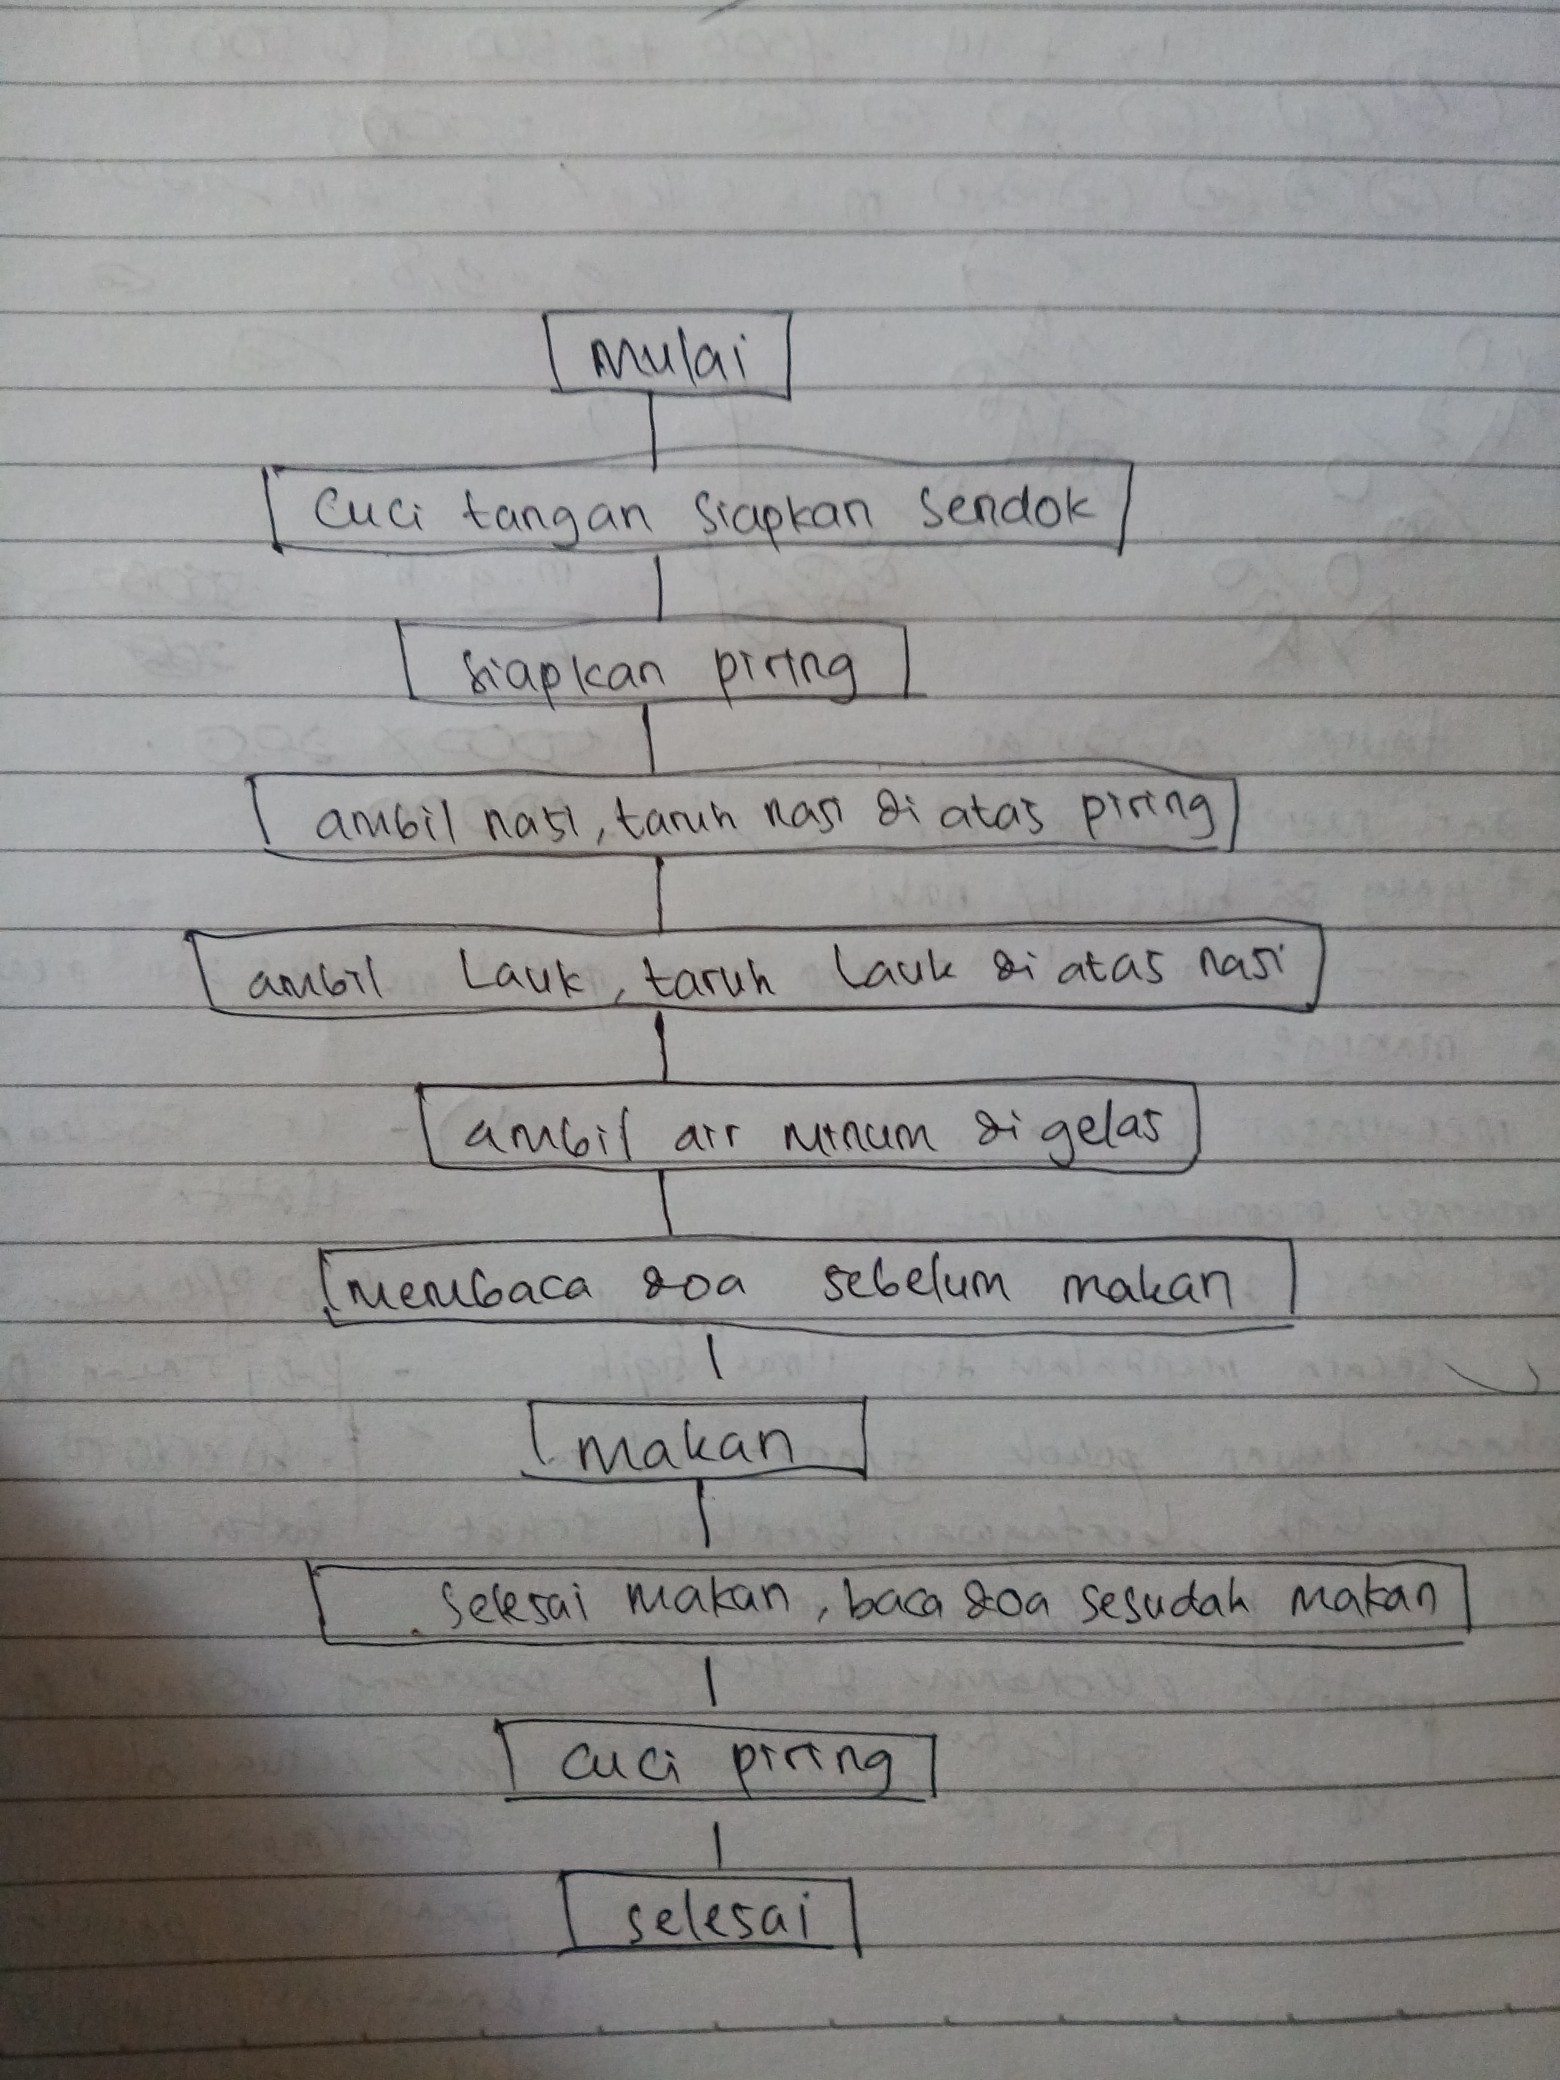 Mulai
Cuci tangan siapkan sendok
siapkan piring
ambil nasi, taruh nasi di atas piring
ambil Lauk, taruh Lauk di atas nasi
ambil air minum di gelas
membaca doa sebelum makan
makan
selesai makan, baca doa sesudah makan
cuci piring
selesai